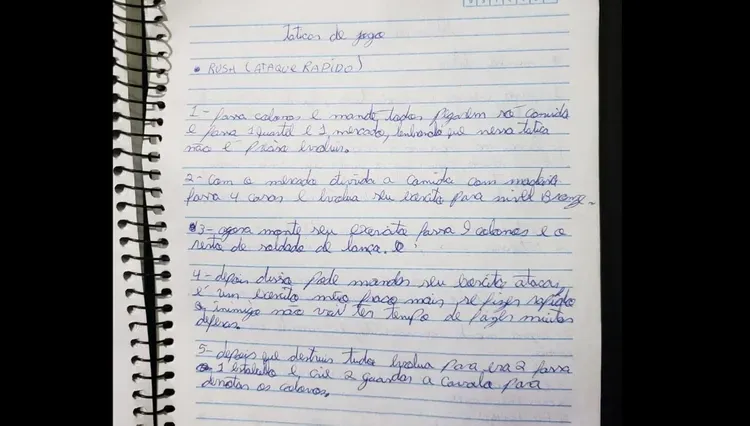 Taticas de jogo
• RUSH (ATAQUE RAPIDO)
1- faça colonos e mande todos pegarem só comida
e faça 1 quartel e 1 mercado, lembrando que nessa tatica
não é preciso evoluir.
2- Com o mercado divida a comida com madeira
faça 4 casas e evolua seu exercito para nivel Bronze.
3- agora monte seu exercito faça 9 colonos e o
resto de soldado de lança.
4- depois disso pode mandar seu exercito atacar,
é um exercito meio fraco mais se fizer rapido
o inimigo não vai ter tempo de fazer muitas
defesas.
5- depois que destruir tudo evolua para era 2 faça
1 estabulo e crie 2 guardas a cavalo para
derrotar os colonos.